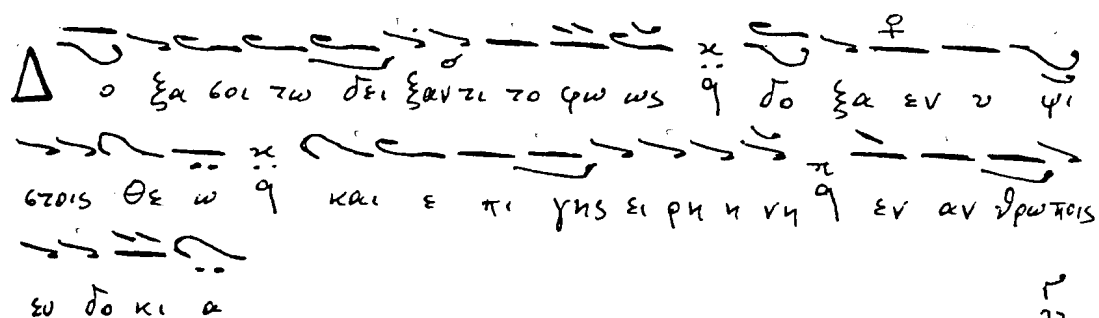 Δ ο ξα σοι τω δει ξαν τι το φω ως δο ξα εν υ ψι
στοις Θε ω και ε πι γης ει ρη η νη εν αν θρω ποις
ευ δο κι α